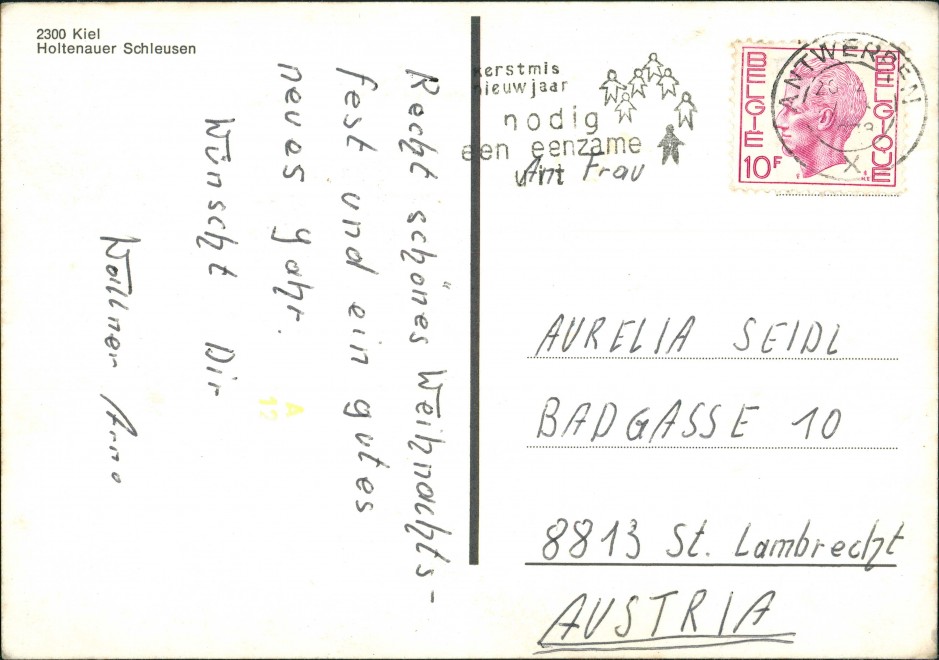 2300 Kiel
Holtenauer Schleusen
Recht schönes Weihnachts-
fest und ein gutes
neues Jahr.
Wünscht Dir
Wallner Arno
A
12
kerstmis
nieuwjaar
nodig
een eenzame
uit
ANTWERPEN
X
BELGIE
BELGIQUE
10F
An Frau
AURELIA SEIDL
BADGASSE 10
8813 St. Lambrecht
AUSTRIA